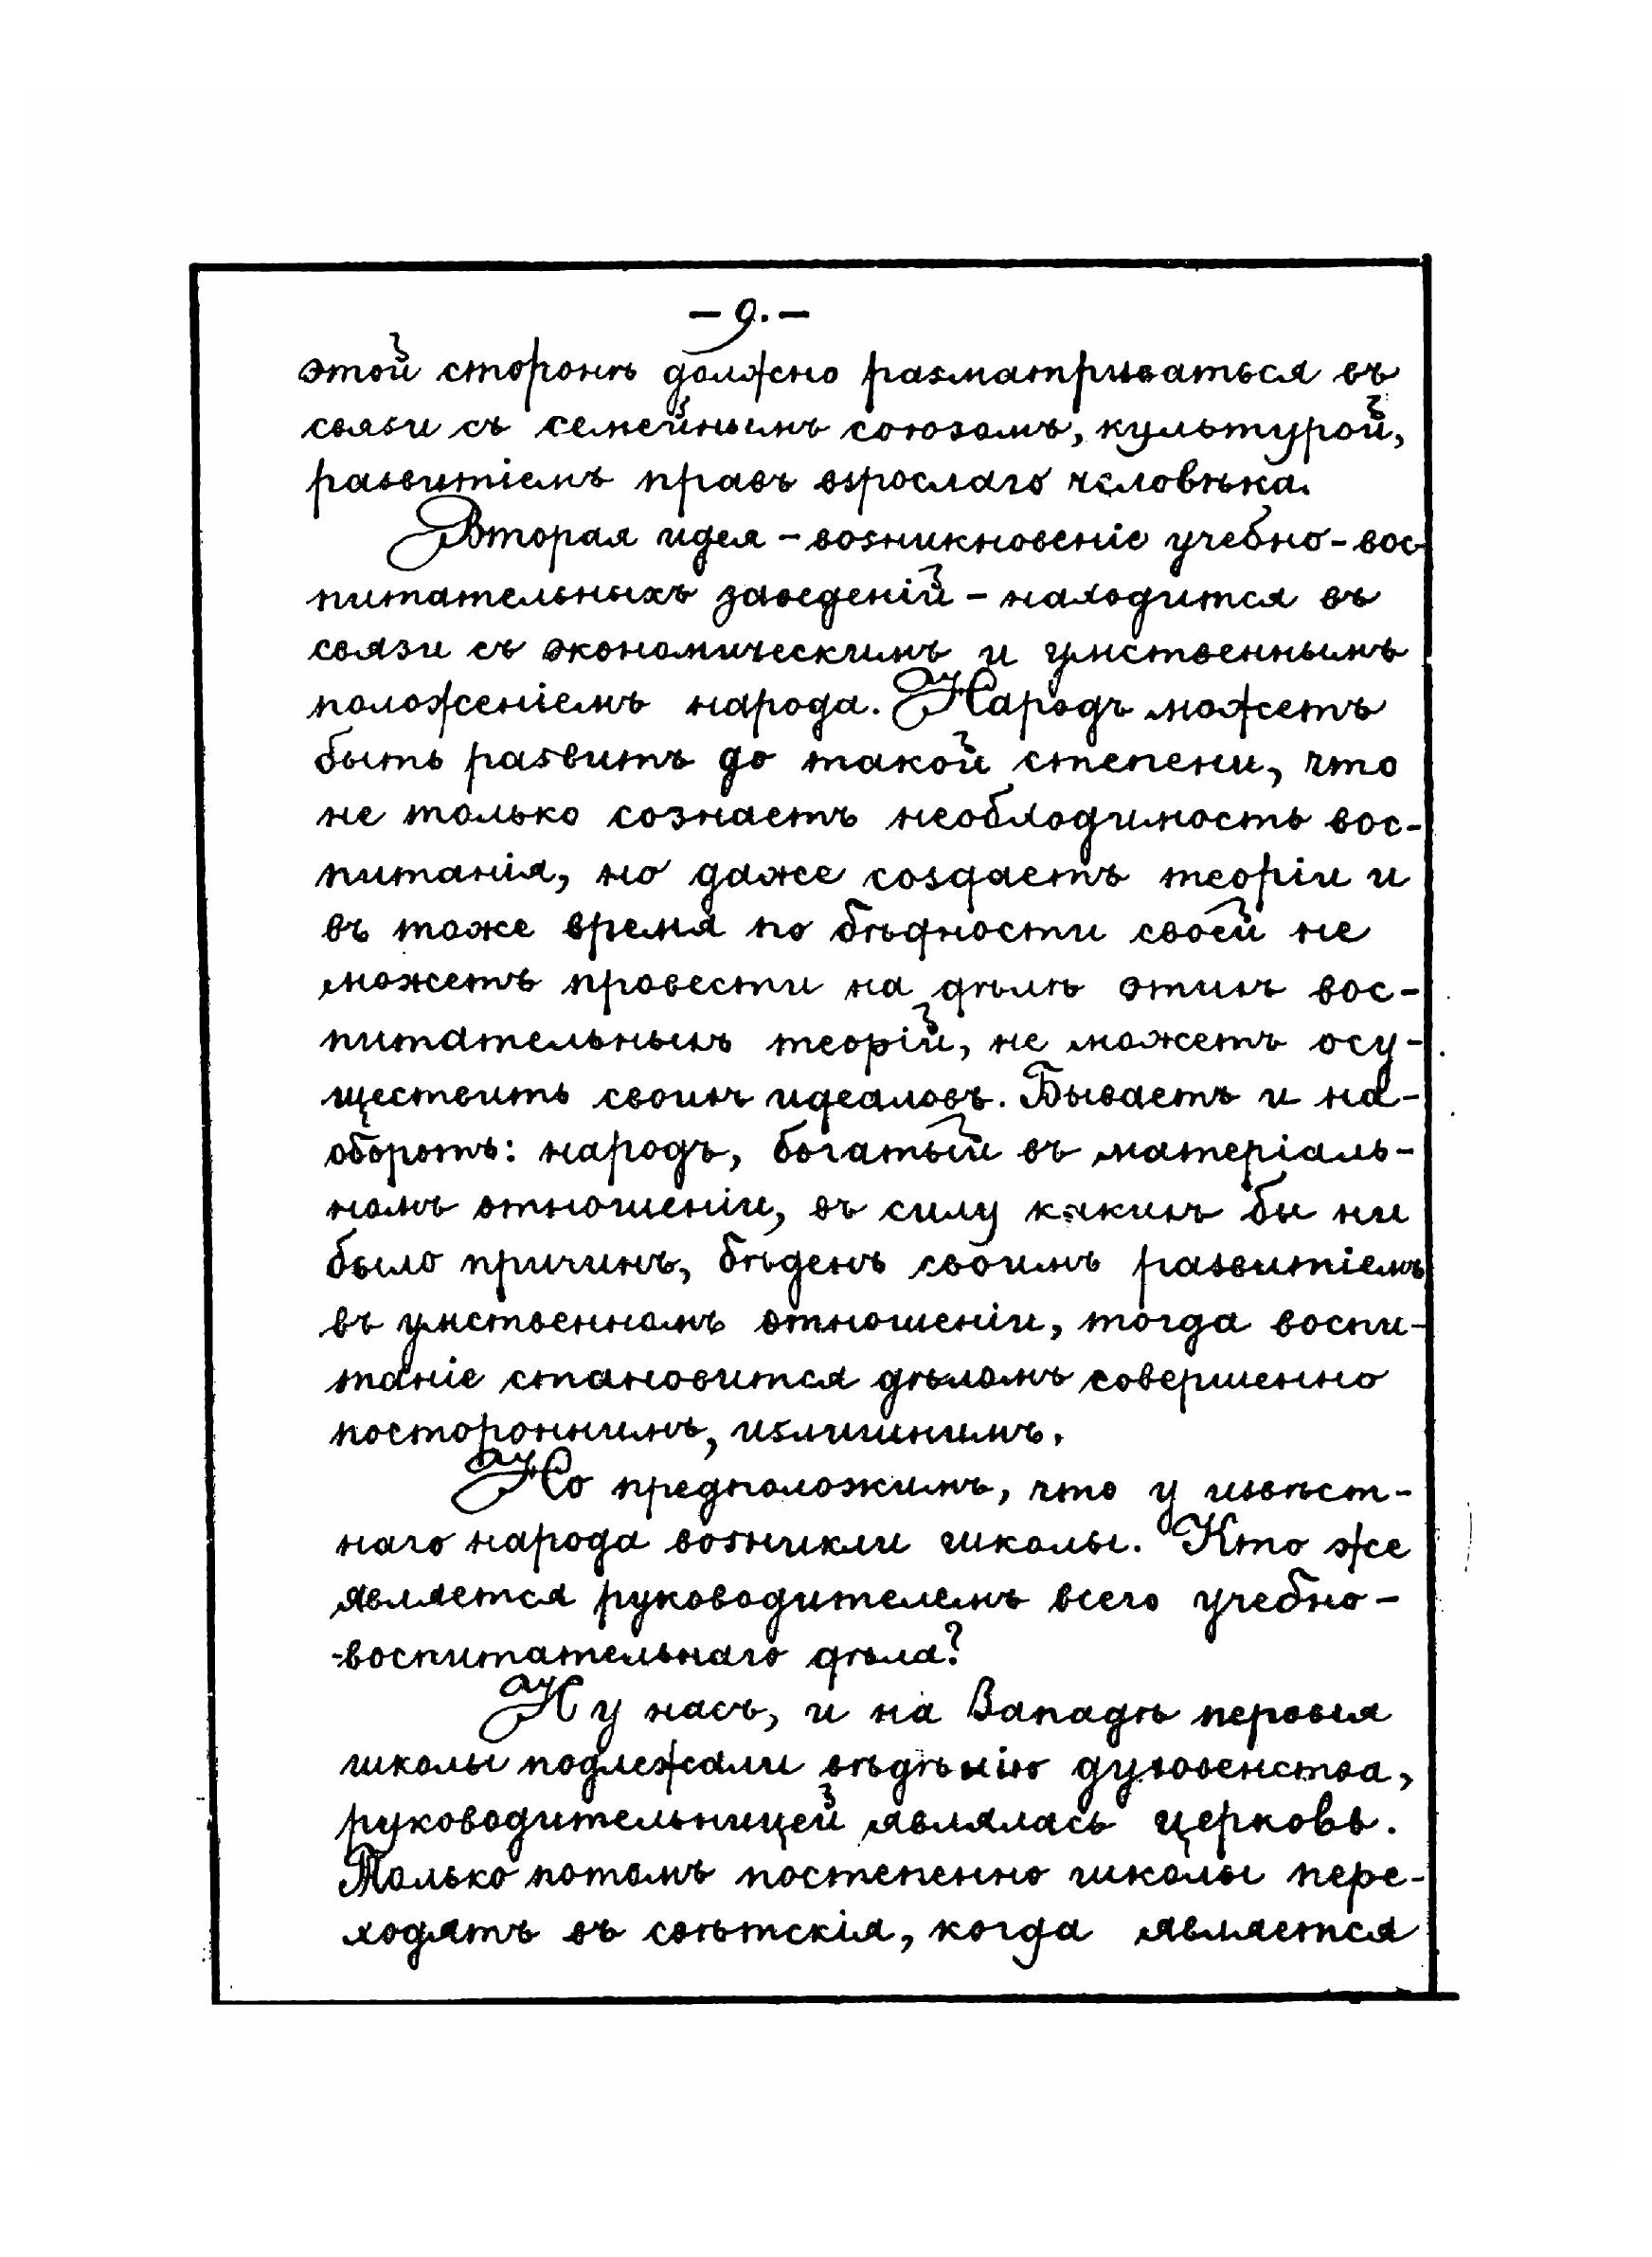 — 9. —
этой сторонѣ должно разматриваться въ
связи съ семейнымъ союзомъ, культурой,
развитіемъ правъ взрослаго человѣка.
Вторая идея – возникновеніе учебно-вос-
питательныхъ заведеній – находится въ
связи съ экономическимъ и умственнымъ
положеніемъ народа. Народъ можетъ
быть развитъ до такой степени, что
не только сознаетъ необходимость вос-
питанія, но даже создаетъ теоріи и
въ тоже время по бѣдности своей не
можетъ провести на дѣлѣ этихъ вос-
питательныхъ теорій, не можетъ осу-
ществить своихъ идеаловъ. Бываетъ и на-
оборотъ: народъ, богатый въ матеріаль-
номъ отношеніи, въ силу какихъ бы ни
было причинъ, бѣденъ своимъ развитіемъ
въ умственномъ отношеніи, тогда воспи-
таніе становится дѣломъ совершенно
постороннимъ, излишнимъ.
Но предположимъ, что у извѣст-
наго народа возникли школы. Кто же
является руководителемъ всего учебно-
-воспитательнаго дѣла?
И у насъ, и на Западѣ первыя
школы подлежали вѣдѣнію духовенства,
руководительницей являлась церковь.
Только потомъ постепенно школы пере-
ходятъ въ свѣтскія, когда является